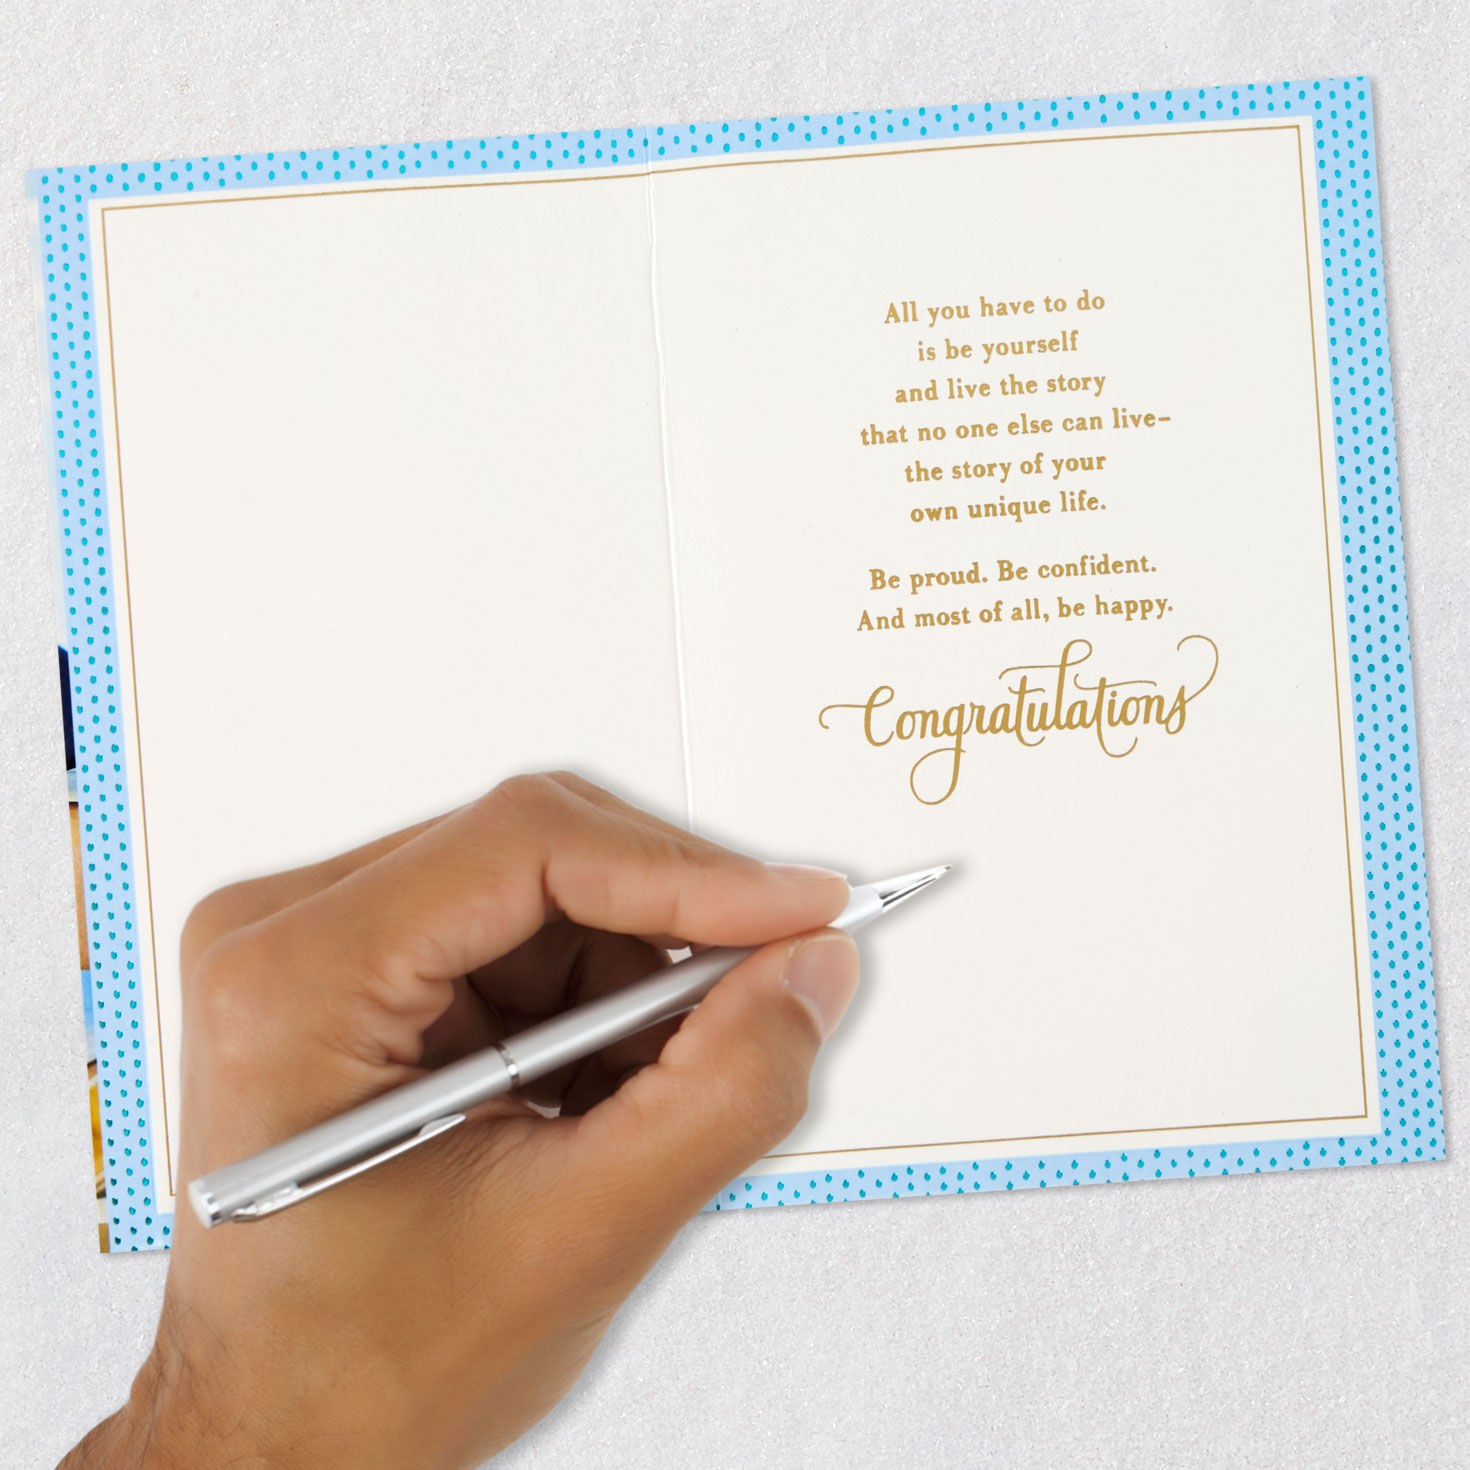 All you have to do
is be yourself
and live the story
that no one else can live–
the story of your
own unique life.
Be proud. Be confident.
And most of all, be happy.
Congratulations